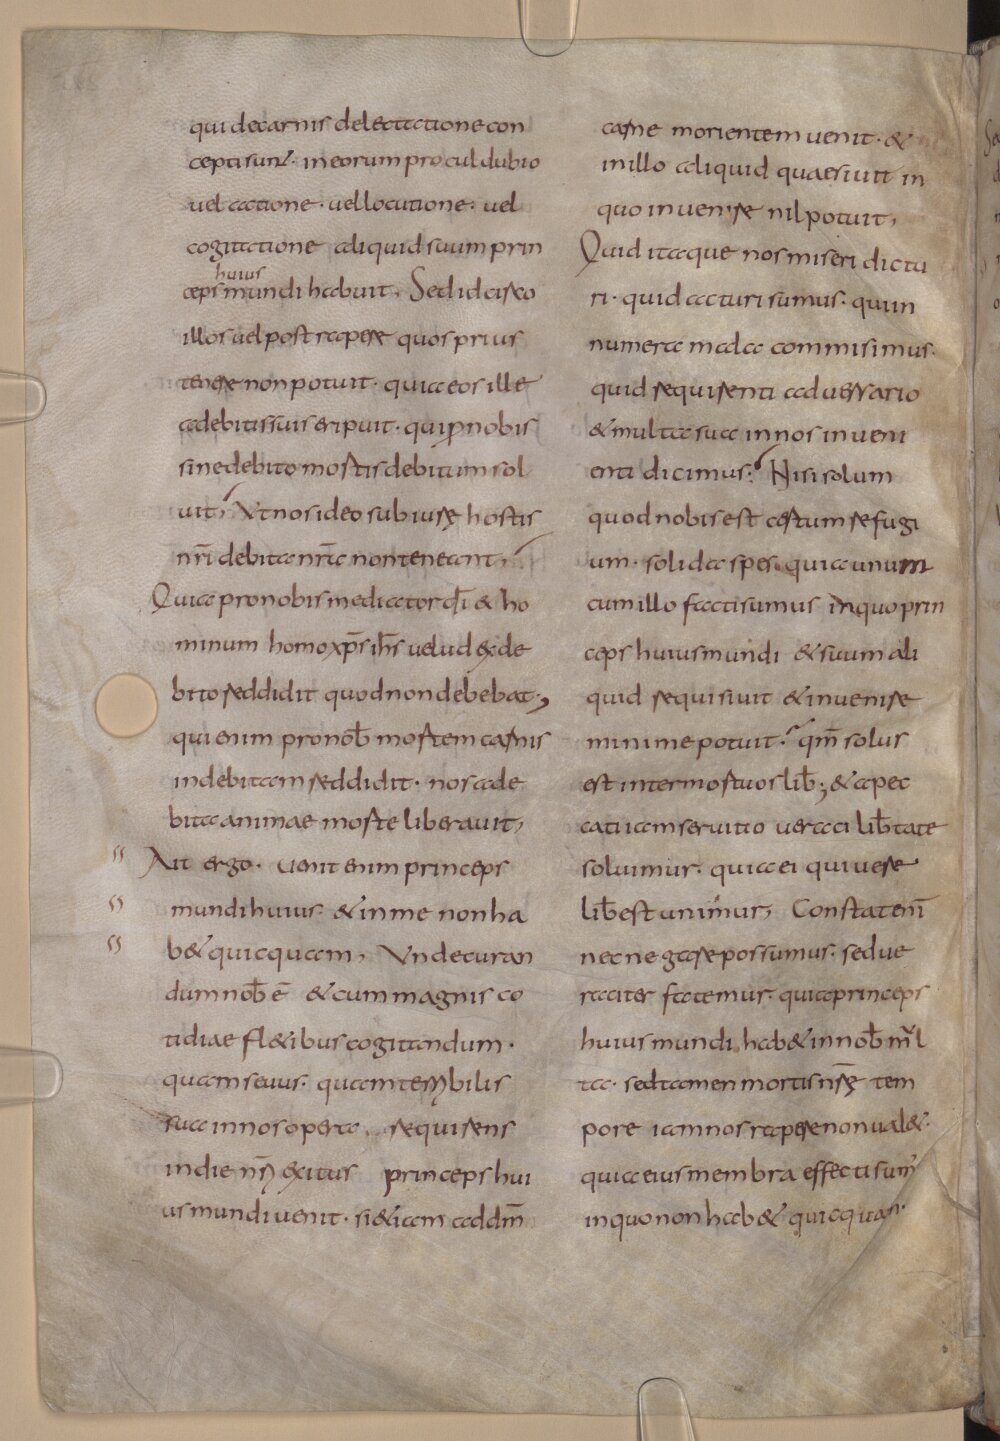 qui decarnis delectatione con
cepti sunt· ineorum procul dubio
uel actione· uel locutione· uel
cogitatione aliquid suum prin
huius
ceps mundi habuit. Sed idcirco
illos uel post rapere quos prius
tenere non potuit· quia eos ille
a debitis suis eripuit· qui ꝓ nobis
sine debito mortis debitum sol
uit; Vt nos ideo sub iure hostis
nr̄i debita nr̄a non teneant.
Quia pro nobis mediator dī & ho
minum homo xp̄s ih̄s uelud ex de
bito reddidit quod non debebat;
qui enim pro nob̄ mortem carnis
indebitam reddidit· nos a de
bita animae morte liberauit,
Ait ergo· uenit enim princeps
mundi huius· & in me non ha
b& quicquam, Vnde curan
dum nob̄ ē & cum magnis co
tidiae fl&ibus cogitandum·
quam seuus· quam terribilis
sua in nos opera, requirens
in die nr̄i exitus princeps hui
us mundi uenit· si &iam ad dm̄
carne morientem uenit· &
in illo aliquid quaesiuit in
quo inuenire nil potuit,
Quid itaque nos miseri dictu
ri· quid acturi sumus· qui in
numera mala commisimus·
quid requirenti aduersario
& multa sua in nos inueni
enti dicimus? Nisi solum
quod nobis est certum refugi
um· solida spes· quia unum
cum illo facti sumus in quo prin
ceps huius mundi & suum ali
quid requisiuit & inuenire
minime potuit· qm̄ solus
est inter mortuos lib̄; & a pec
cati iam seruitio ueraci lib̄tate
soluimur· quia ei qui uere
lib̄ est unimur, Constat enī
nec negare possumus· sed ue
raciter fatemur· quia princeps
huius mundi hab& in nob̄ ml
ta· sed tamen mortis nr̄ę tem
pore iam nos rapere non ual&·
quia eius membra effecti sum̄
in quo non hab& quicquam·